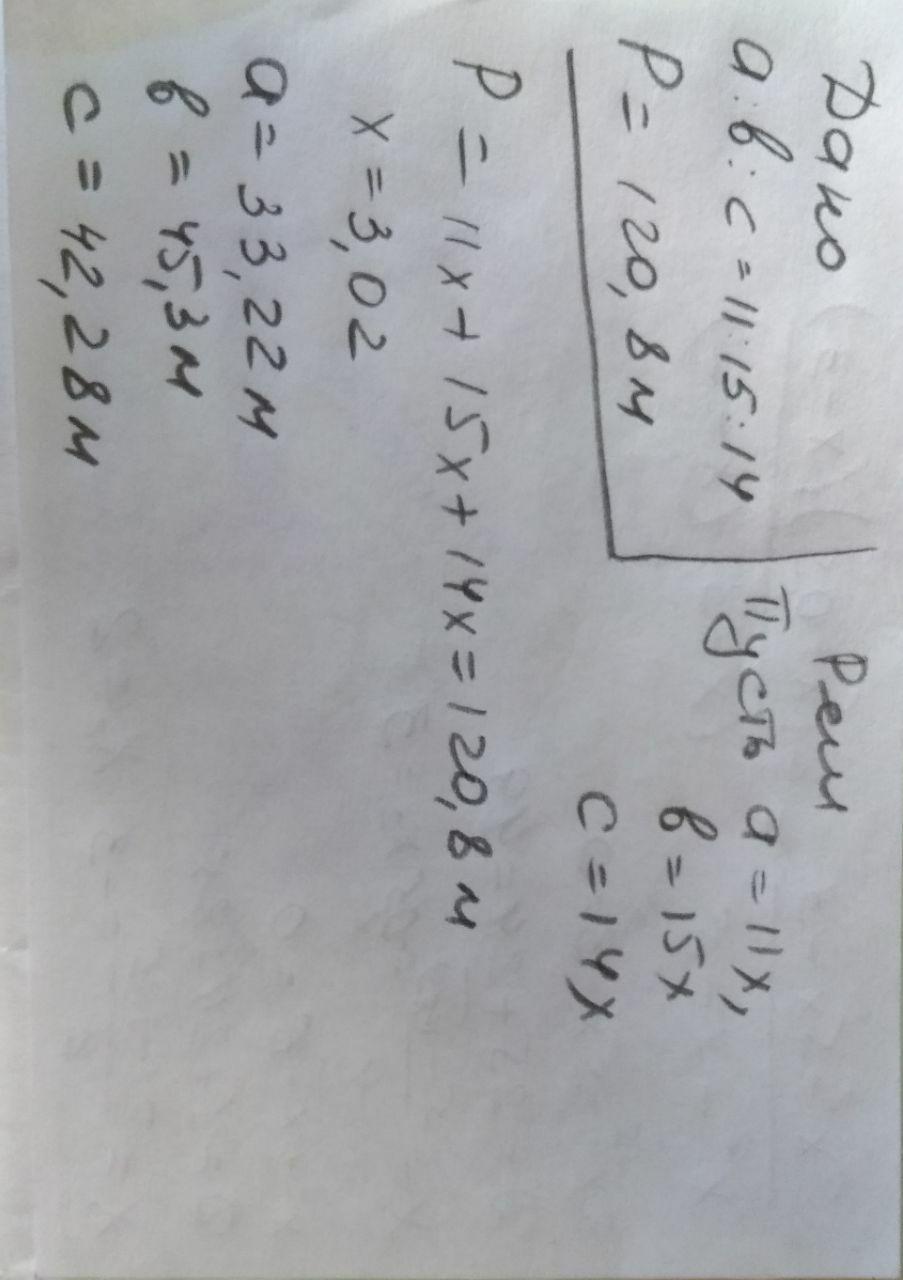 Дано
а:в:с=11:15:14
Р= 120,8м
Реш
Пусть а=11х,
в=15х
с=14х
Р=11х+15х+14х=120,8м
х=3,02
а=33,22м
в=45,3м
с=42,28м